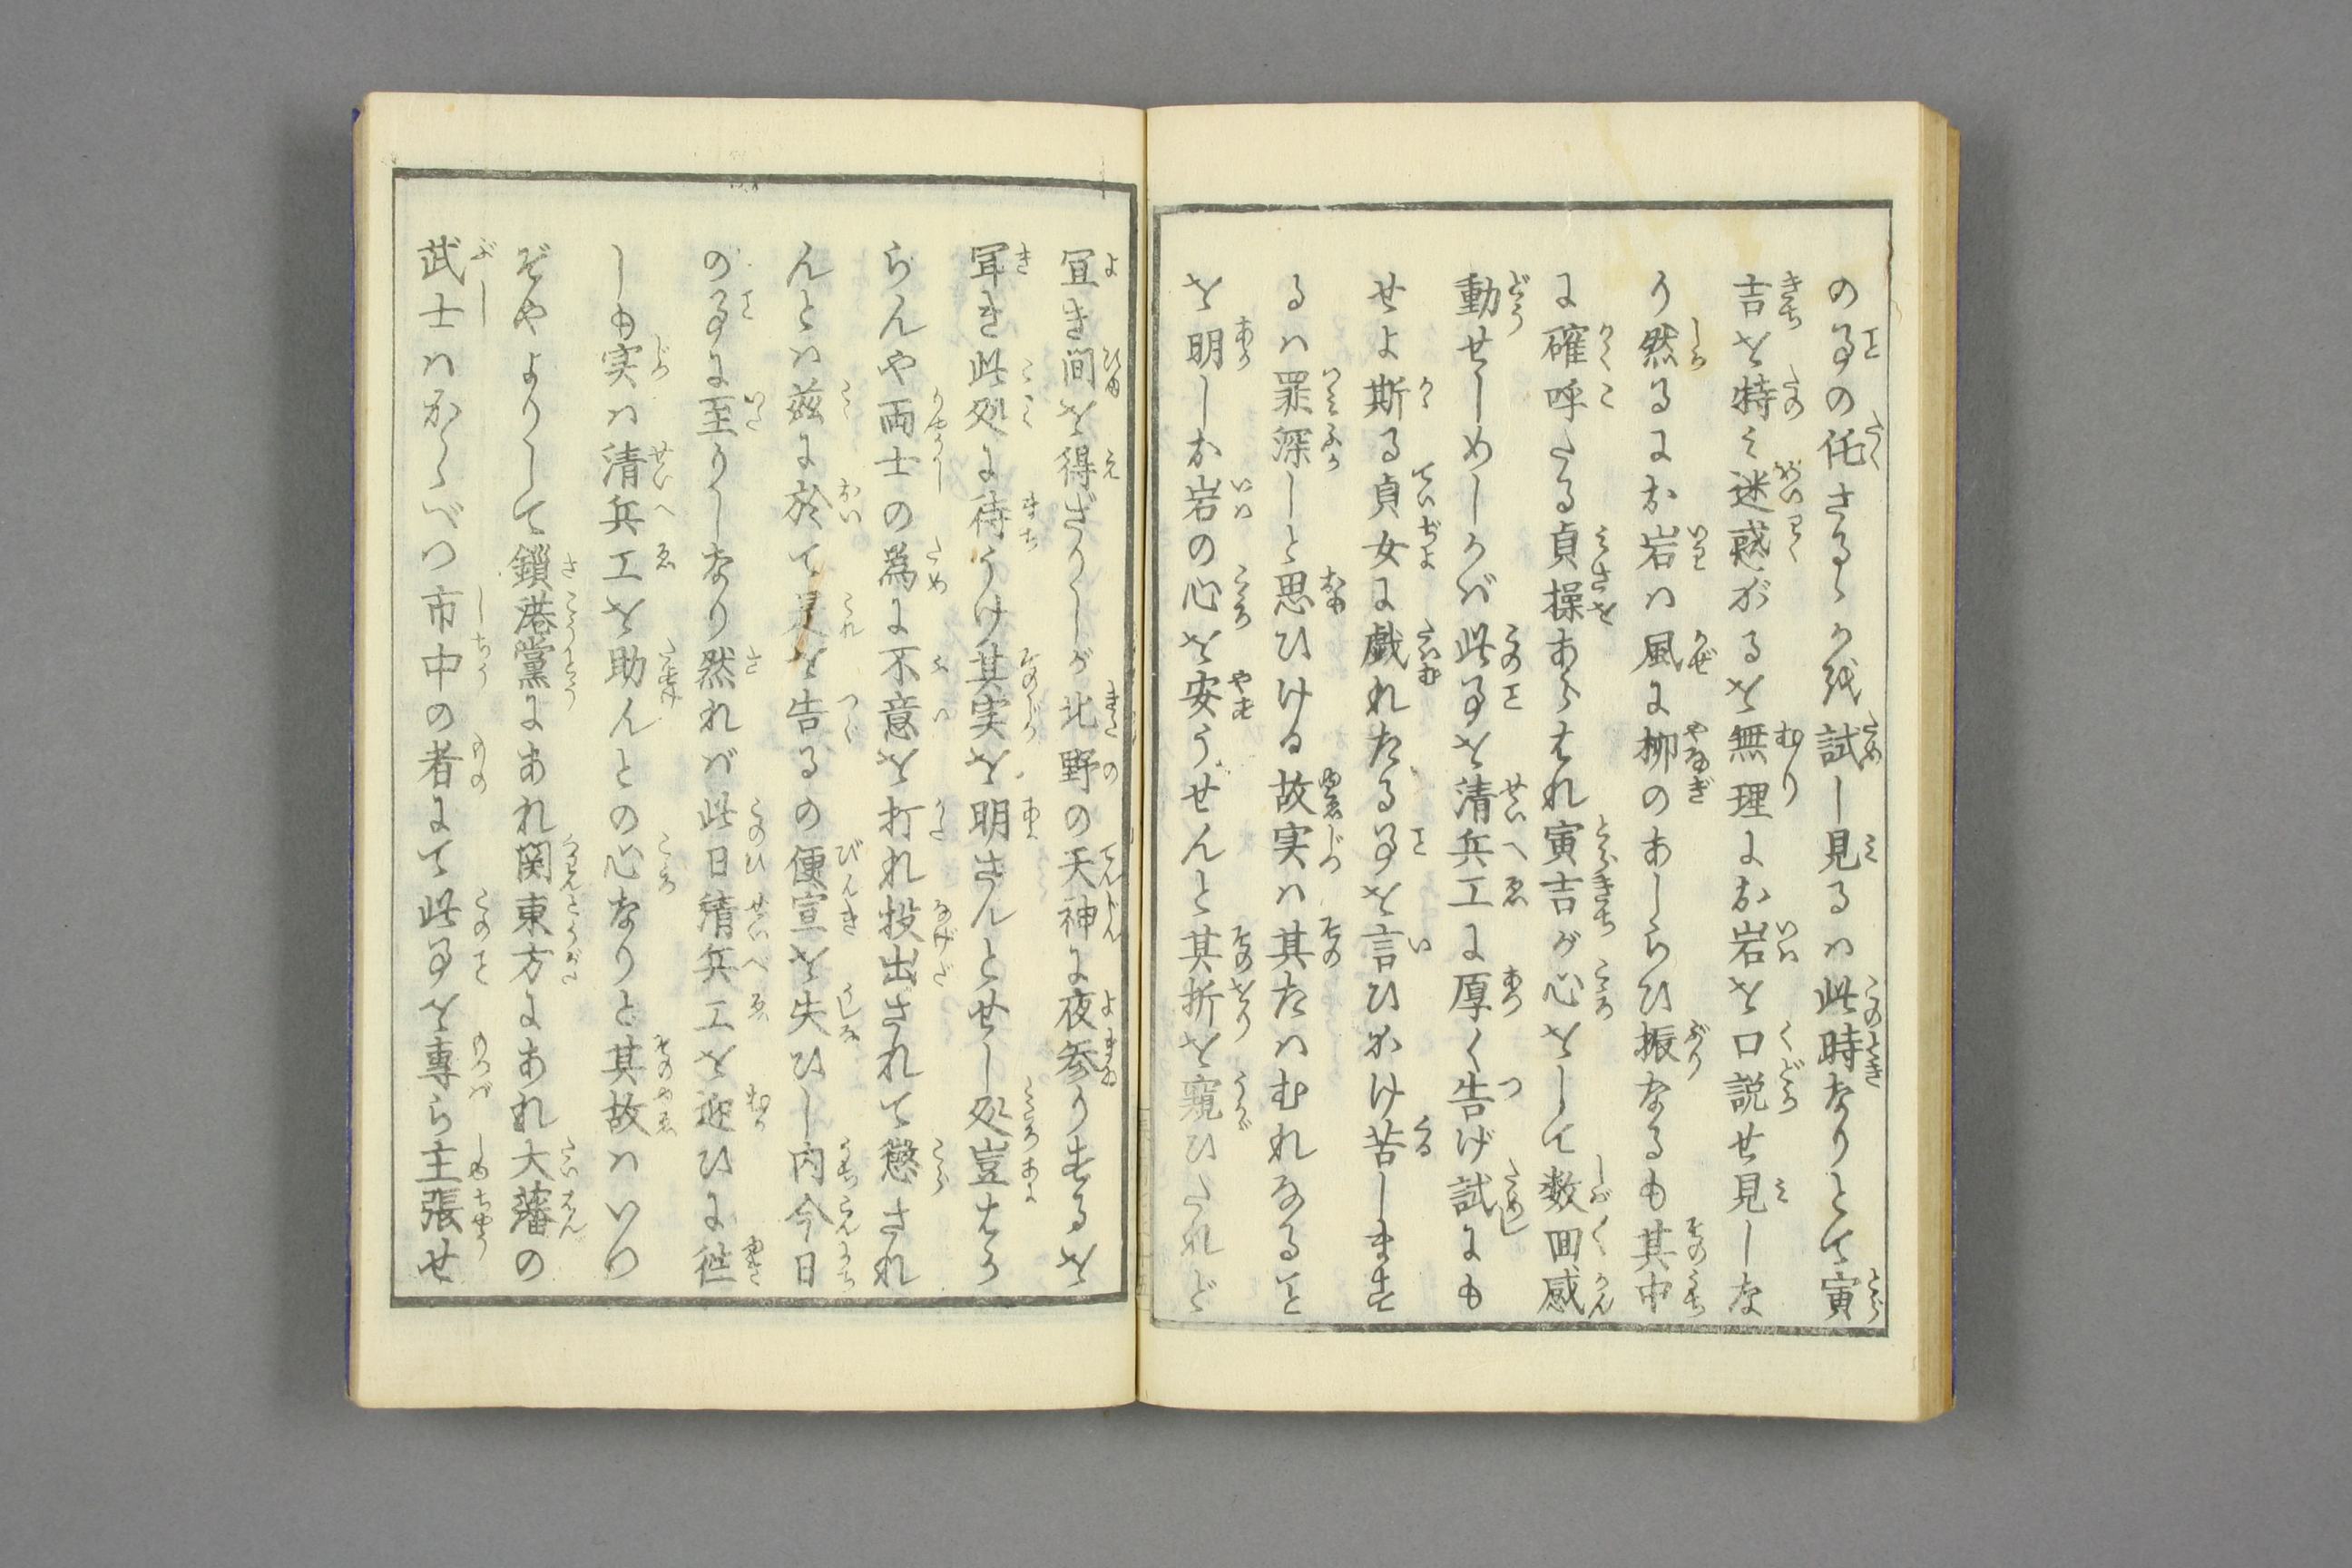 の事の任さるゝか或試し見るハ此時なりとて寅
吉を特ミ迷惑がるを無理にお岩を口説せ見しな
り然るにお岩ハ風に柳のあしらひ振なるも其中
に確呼たる貞操あらはれ寅吉が心をして数回感
動せしめしかバ此事を清兵エに厚く告げ試にも
せよ斯る貞女に戯れたる事を言ひかけ苦します
るハ罪深しと思ひける故実ハ其たハむれなること
を明しお岩の心を安うせんと其折を窺ひたれど
冝き間を得ざりしが北野の天神に夜参りするを
耳き此処に待うけ其実を明さんとせし処豈はか
らんや両士の為に不意を打れ投出されて懲され
んとハ茲に於て是を告るの便宣を失ひし内今日
の事に至りしなり然れバ此日清兵エを迎ひに徃
しも実ハ清兵エを助んとの心なりと其故ハいつ
ぞやよりして鎖港黨にあれ関東方にあれ大藩の
武士ハかゝへつ市中の者にて此事を專ら主張せ